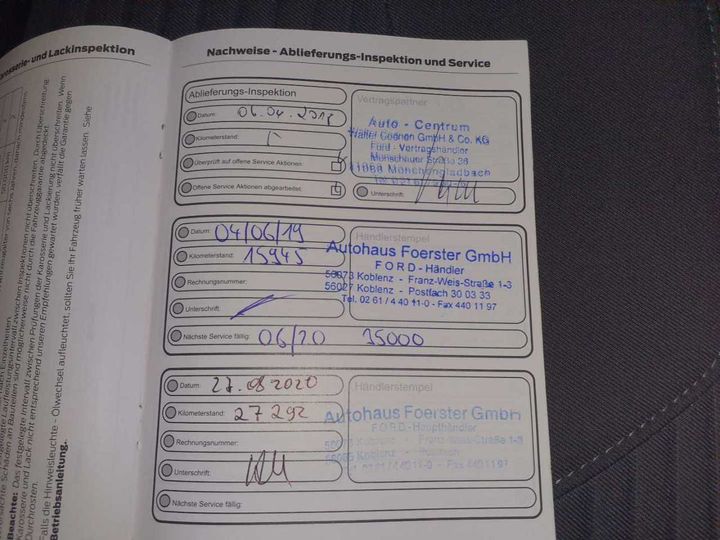 Karosserie- und Lackinspektion
Beachte: Das festgelegte Intervall zwischen Prüfungen der Karosserie und Lackierung nicht überschreiten. Wenn
Karosserie und Lack nicht entsprechend unseren Empfehlungen gewartet wurden, verfällt die Garantie gegen
Durchrosten.
Falls die Hinweisleuchte - Ölwechsel aufleuchtet, sollten Sie Ihr Fahrzeug früher warten lassen. Siehe
Betriebsanleitung.
Nachweise - Ablieferungs-Inspektion und Service
Ablieferungs-Inspektion
Datum: 06.04.2018
Kilometerstand:
Überprüft auf offene Service Aktionen:
Offene Service Aktionen abgearbeitet:
Vertragspartner
Auto - Centrum
Walter Coenen GmbH & Co. KG
Ford - Vertragshändler
Monschauer Straße 36
41068 Mönchengladbach
Unterschrift:
Datum: 04/06/19
Kilometerstand: 15945
Rechnungsnummer:
Unterschrift:
Nächste Service fällig: 06/20 35000
Händlerstempel
Autohaus Foerster GmbH
FORD-Händler
56073 Koblenz - Franz-Weis-Straße 1-3
56027 Koblenz - Postfach 30 03 33
Tel. 02 61 / 4 40 11-0 - Fax 440 11 97
Datum: 27.08.2020
Kilometerstand: 27292
Rechnungsnummer:
Unterschrift:
Nächste Service fällig:
Händlerstempel
Autohaus Foerster GmbH
FORD-Haupthändler
Koblenz - Franz-Weis-Straße 1-3
Koblenz - Postfach
Fax 440 11 97